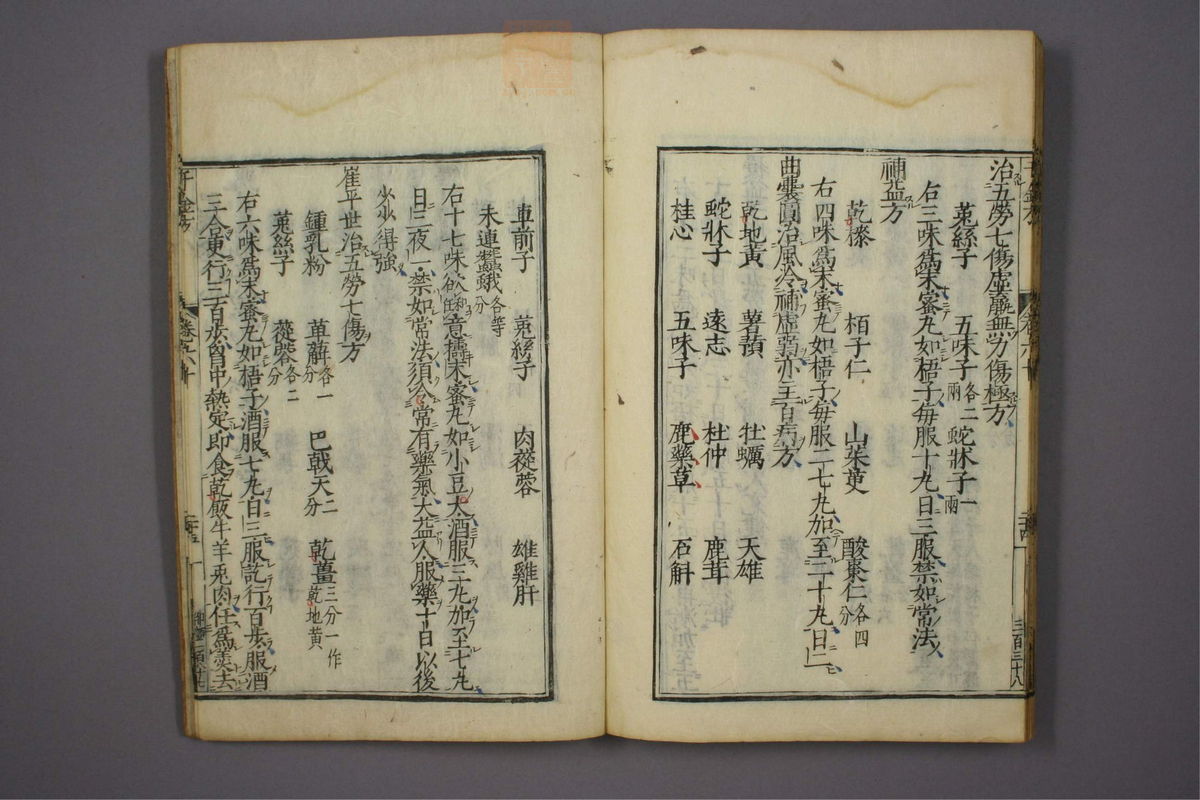 治五勞七傷虛羸無力傷極方
菟絲子 五味子各二兩 蛇牀子一兩
右三味爲末蜜丸如梧子每服十丸日三服禁如常法
補益方
乾漆 栢子仁 山茱萸 酸棗仁各四分
右四味爲末蜜丸如梧子每服二七丸加至二十丸日二
曲囊圓治風冷補虛弱亦主百病方
乾地黃 薯蕷 牡蠣 天雄
蛇牀子 遠志 杜仲 鹿茸
桂心 五味子 鹿藥草 石斛
車前子 菟絲子 肉蓯蓉 雄雞肝
未連蠶蛾各等分
右十七味欲和任意擣末蜜丸如小豆大酒服三丸加至七丸
日三夜一禁如常法須令常有藥氣大益人服藥十日以後
少少得強
崔平世治五勞七傷方
鍾乳粉 萆薢各一分 巴戟天二分 乾薑三分一作乾地黄
菟絲子 蓯蓉各二分
右六味爲末蜜丸如梧子酒服七丸日三服訖行百步服酒
三合更行三百步胷中熱定即食乾飯牛羊兎肉任爲羹去
三百三十八